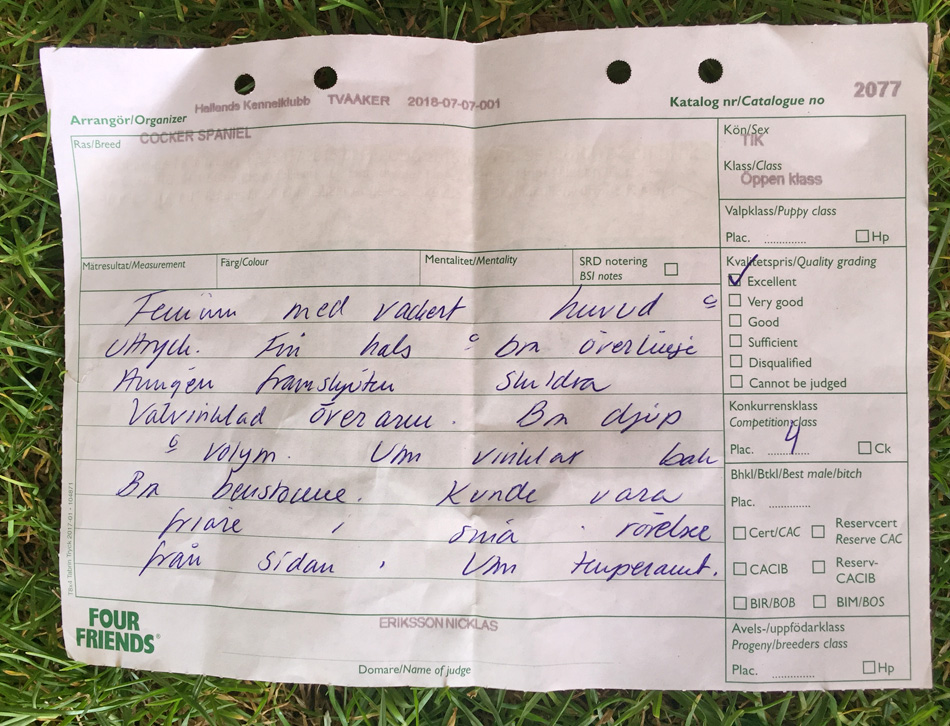 Hallands Kennelklubb TVÅAKER 2018-07-07-001
Katalog nr/Catalogue no 2077
Arrangör/Organizer
Ras/Breed COCKER SPANIEL
Kön/Sex
TIK
Klass/Class
Öppen klass
Valpklass/Puppy class
Plac. ............ Hp
Mätresultat/Measurement Färg/Colour Mentalitet/Mentality SRD notering
BSI notes
Kvalitetspris/Quality grading
Excellent
Very good
Good
Sufficient
Disqualified
Cannot be judged
Feminin med vackert huvud o
uttryck. Fin hals o bra överlinje
Aningen framskjuten skuldra
Välvinklad överarm. Bra djup
o volym. Utm vinklar bak
Bra benstomme. Kunde vara
friare i sina rörelse
från sidan. Utm temperamt.
Konkurrensklass
Competition class
Plac. 4 Ck
Bhkl/Btkl/Best male/bitch
Plac. ............
Cert/CAC Reservcert
Reserve CAC
CACIB Reserv-
CACIB
BIR/BOB BIM/BOS
Avels-/uppfödarklass
Progeny/breeders class
Plac. ............ Hp
FOUR
FRIENDS®
ERIKSSON NICKLAS
Domare/Name of judge